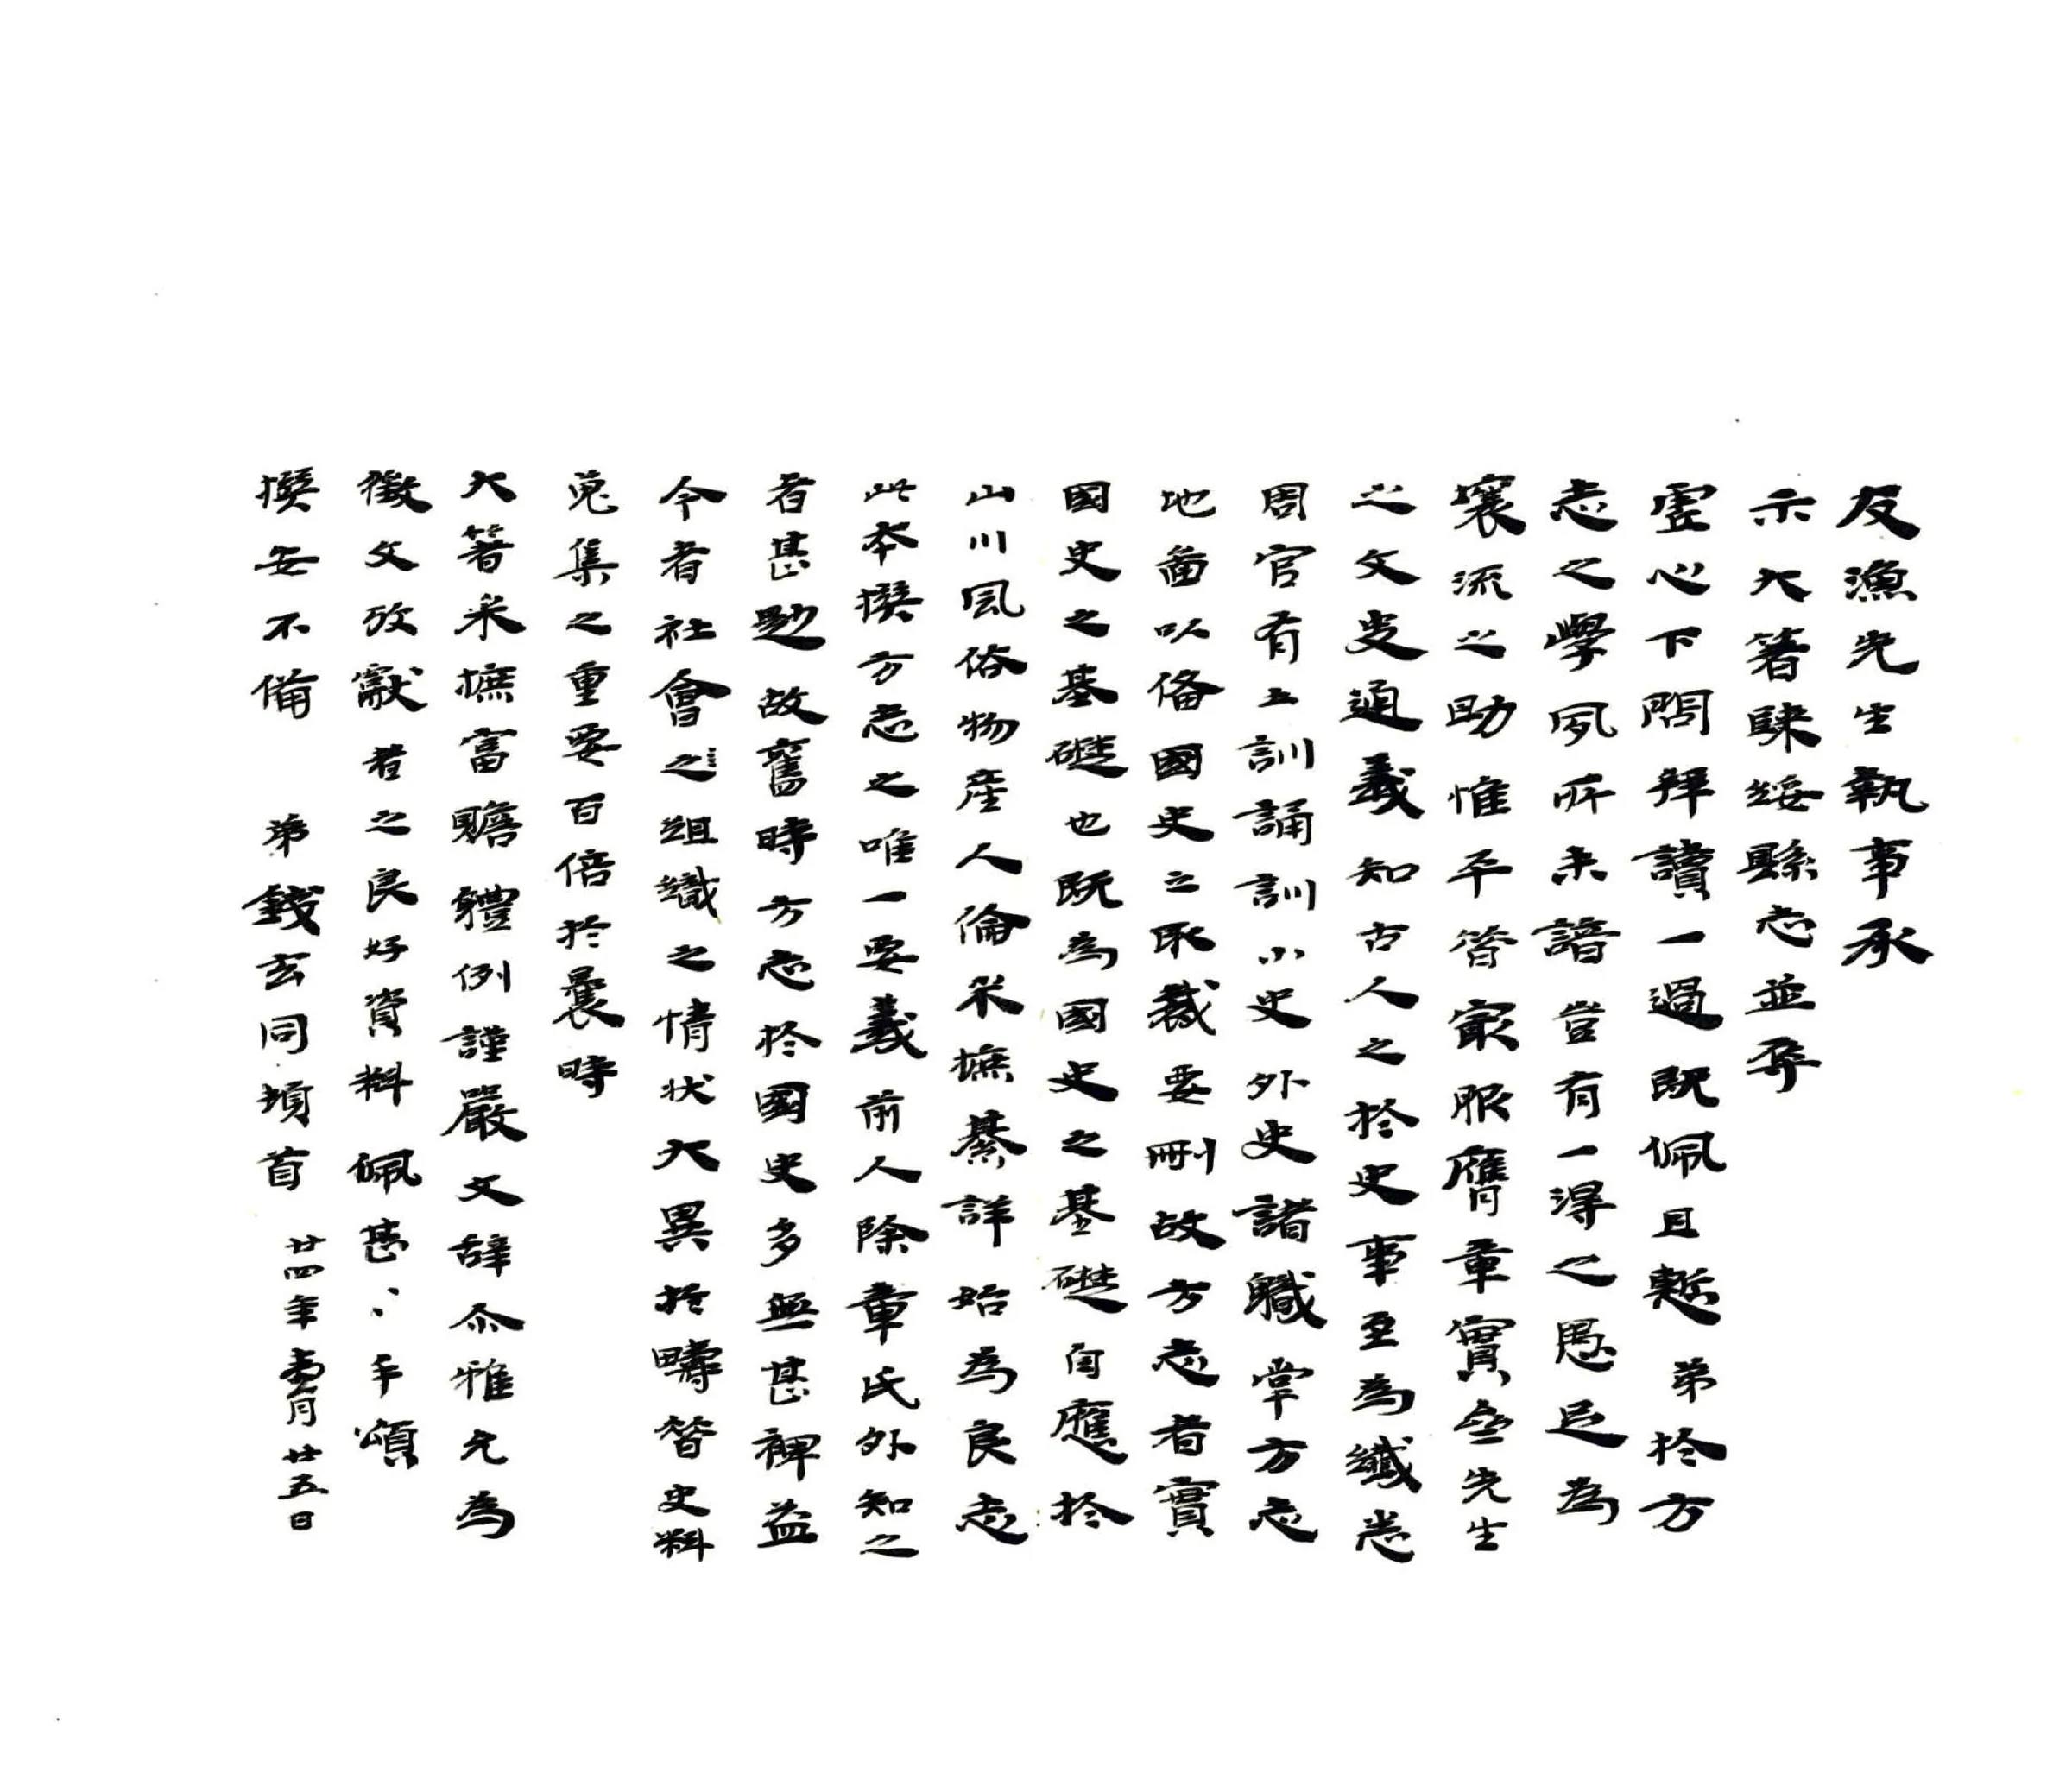 友漁先生執事承
示大箸肆綏縣志並弄
虛心下問拜讀一過既佩且慙弟於方
志之學夙所未諳豈有一得之愚足為
襄流之助惟平昔最服膺章實垒先生
之文史通義知古人之於史事至為纖悉
周官有土訓誦訓小史外史諸職掌方志
地啚以俻國史之取裁要刪故方志者實
國史之基礎也既為國史之基礎自應於
山川風俗物產人倫采摭綦詳始為良志
此本撰方志之唯一要義前人除章氏外知之
者甚尟故舊時方志於國史多無甚裨益
今者社會之組織之情狀大異於疇昔史料
蒐集之重要百倍於曩時
大箸采摭富贍體例謹嚴文辭亦雅允為
徵文攷獻者之良好資料佩甚〻手頌
撰安不備 弟錢玄同頓首 廿四年壹月廿五日